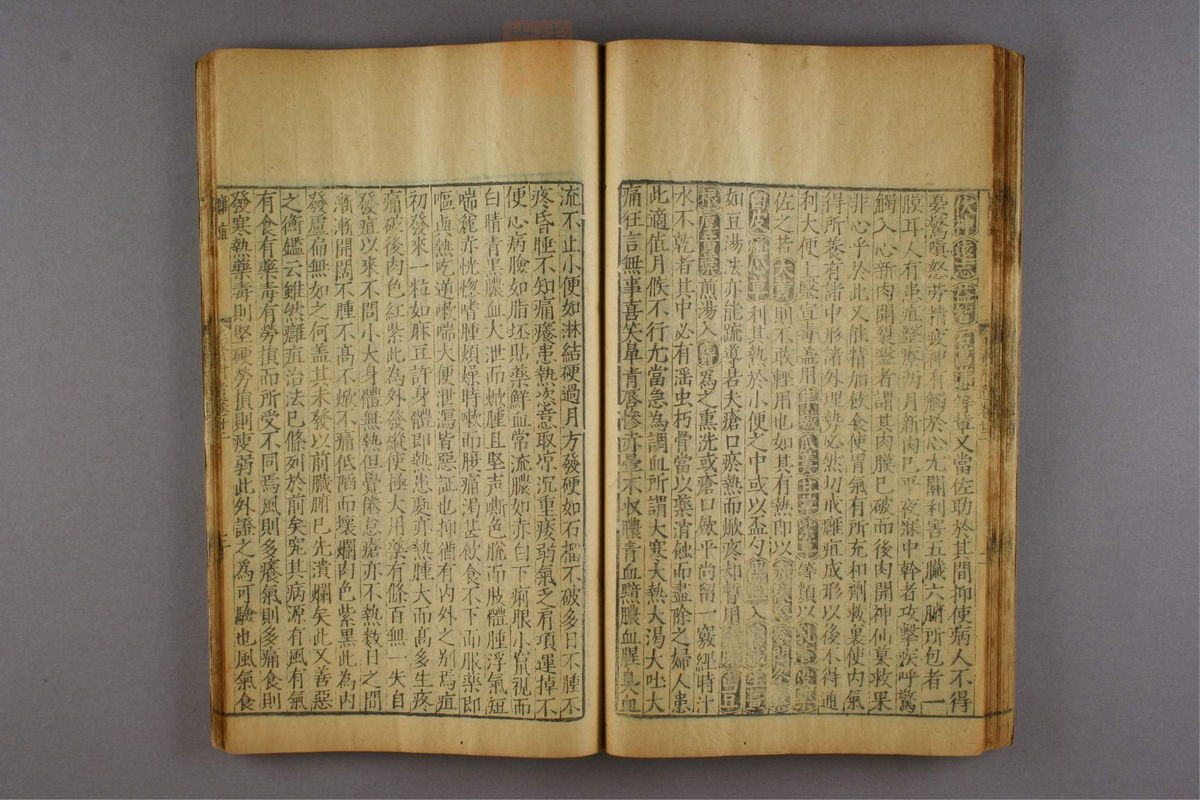 茯神遠志益智石菖蒲等輩又當佐助於其間抑使病人不得
憂驚嗔怒勞精疲神有觸於心尤關利害五臟六腑所包者一
膜耳人有患疽瘥後兩月新肉已平夜寐中幹者攻擊疾呼驚
觸入心新肉開裂瘂者謂其肉膜已破而後肉開神仙莫救果
非心乎於此又能精加飲食使胃氣有所充和劑救裏使內氣
得所養有諸中形諸外理勢必然切戒癰疽成形以後不得通
利大便上醫宣毒蓋用甘草等類以
佐之若大黃則不敢輕用也如其有熱即以
皮燈心草利其熱於小便之中或以盃勺黑豆入生甘草
如豆湯法亦能疏導若夫瘡口瘀熱而焮疼却暫用
根厚黃蘗煎湯入醋為之熏洗或瘡口斂平尚留一竅經時汁
水不乾者其中必有溼虫朽骨當以藥消蝕而盡除之婦人患
此適值月候不行尤當急為調血所謂大寒大熱大渴大吐大
痛狂言無事喜笑鼻青唇慘赤暈不收膿青血黯膿血腥臭血
流不止小便如淋結硬過月方發硬如石榴不破多日不腫不
疼昏睡不知痛癢患熱恣意取凉沉重痿弱氣乏肩項運掉不
便心病臉如脂坯貼藥鮮血常流膿如赤白下痢眼小窠視而
白睛青黑膿血大泄而焮腫且堅声嘶色脫而肢體腫浮氣短
喘麄赤恍惚嗜腫煩燥時嗽而腰痛渴甚飲食不下而服藥即
嘔盛熱吃逆嗽喘大便泄瀉皆惡証也抑猶有內外之別焉疽
初發來一粒如麻豆許身體即熱患處亦熱腫大而高多生疼
痛破後肉色紅紫此為外發縱使極大用藥有條百無一失自
發疽以來不問小大身體無熱但覺倦怠瘡亦不熱數日之間
漸漸開闊不腫不高不焮不痛低陷而壞爛肉色紫黑此為內
發盧扁無如之何蓋其未發以前臟腑已先潰爛矣此又善惡
之衡鑑云雖然癰疽治法已條列於前矣究其病源有風有氣
有食有藥毒有勞損而所受不同焉風則多癢氣則多痛食則
發寒熱藥毒則堅硬勞損則瘦弱此外證之為可驗也風氣食
癰疽